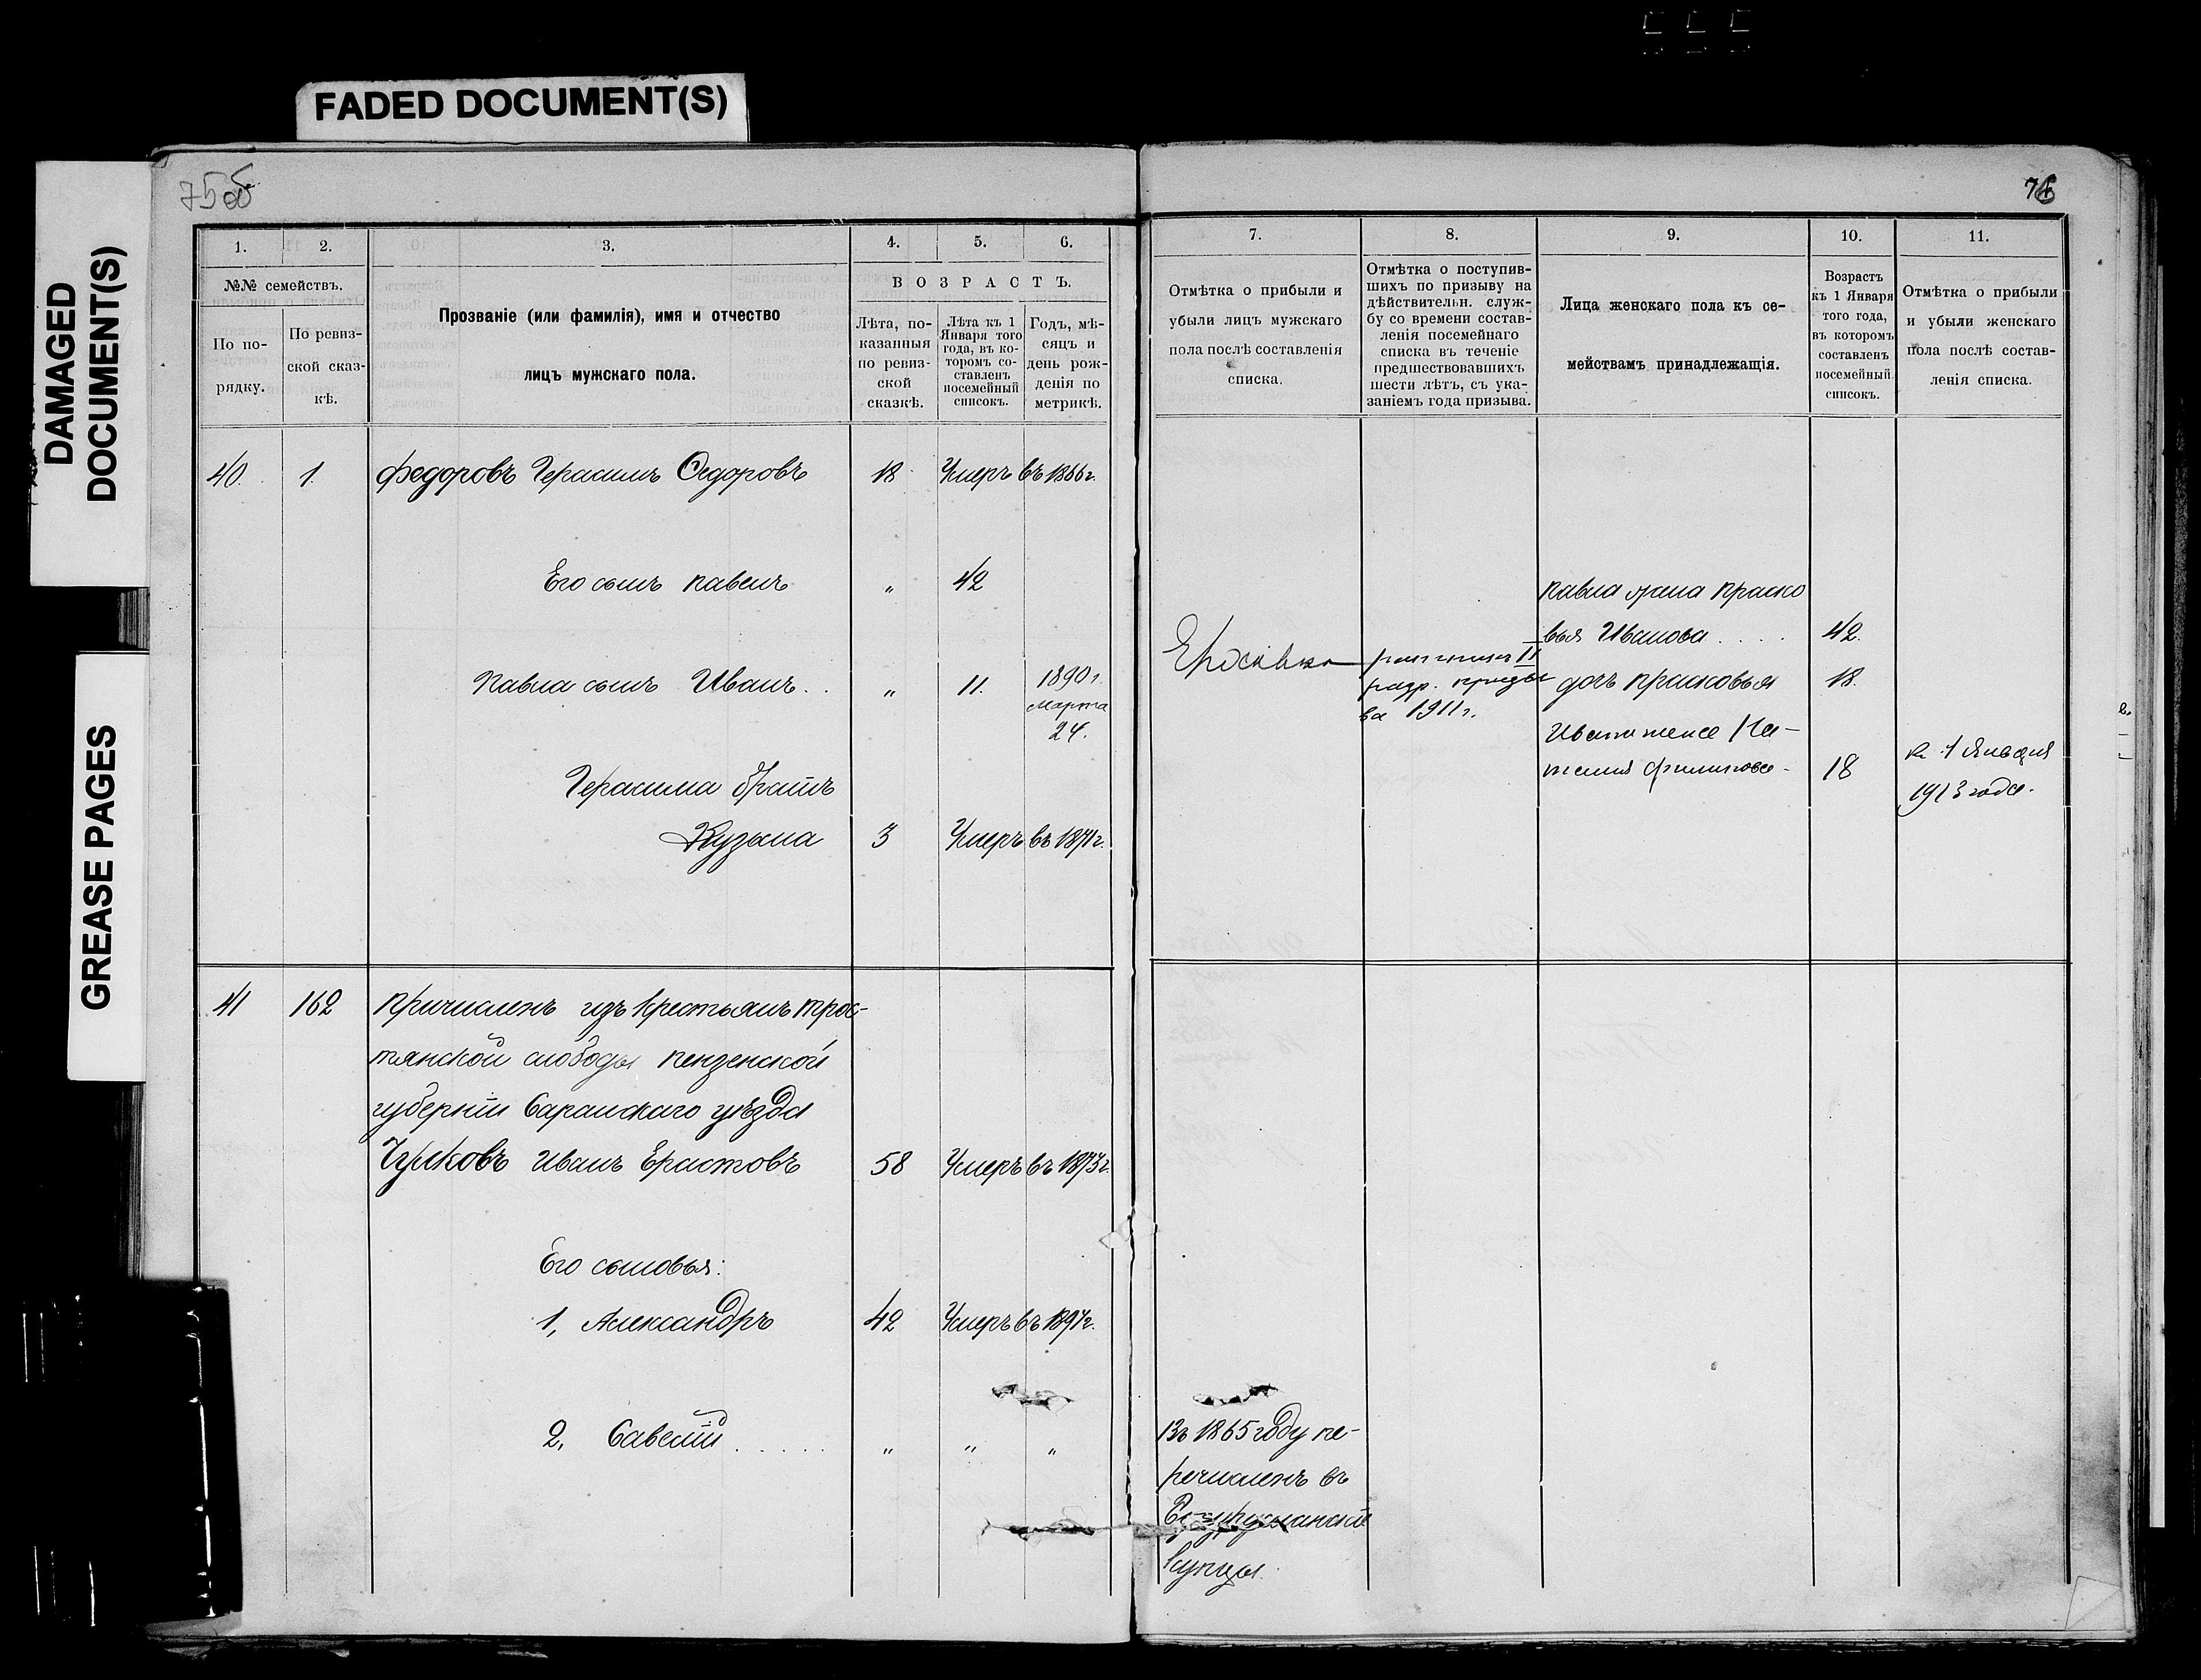 FADED DOCUMENT(S)
DAMAGED
DOCUMENT(S)
GREASE PAGES
75об
1.
2.
3.
4.
5.
6.
№№ семействъ.
По по-
рядку.
По ревиз-
ской сказ-
кѣ.
Прозваніе (или фамилія), имя и отчество
лицъ мужскаго пола.
ВОЗРАСТЪ.
Лѣта, по-
казанныя
по ревиз-
ской
сказкѣ.
Лѣта къ 1
Января того
года, въ ко-
торомъ со-
ставленъ
посемейный
списокъ.
Годъ, мѣ-
сяцъ и
день рож-
денія по
метрикѣ.
40. 1. Федоровъ Герасимъ Федоровъ 18 Умеръ въ 1866г.
Его сынъ Павелъ „ 42
Павла сынъ Иванъ . . „ 11. 1890г.
Марта
24.
Герасима братъ
Кузьма 3 Умеръ въ 1871г.
41 162 Причисленъ изъ крестьянъ Трос-
тянской слободы Пензенской
губерніи Саранскаго уѣзда
Чулковъ Иванъ Ерастовъ 58 Умеръ въ 1873г.
Его сыновья:
1, Александръ 42 Умеръ въ 1897г.
2, Савелій . . . . . „ „ „
7.
8.
9.
10.
11.
Отмѣтка о прибыли и
убыли лицъ мужскаго
пола послѣ составленія
списка.
Отмѣтка о поступив-
шихъ по призыву на
дѣйствительн. служ-
бу со времени состав-
ленія посемейнаго
списка въ теченіе
предшествовавшихъ
шести лѣтъ, съ ука-
заніемъ года призыва.
Лица женскаго пола къ се-
мействамъ принадлежащія.
Возрастъ
къ 1 Января
того года,
въ которомъ
составленъ
посемейный
списокъ.
Отмѣтка о прибыли
и убыли женскаго
пола послѣ состав-
ленія списка.
ратникъ II
разр. призы
ва 1911г.
Павла жена Праско
вья Иванова . . . . 42.
дочь Прасковья 18.
Ивана жена На-
талия Филипова - 18
къ 1 Января
1913 года.
Въ 1865 году пе-
речисленъ въ
купцы.